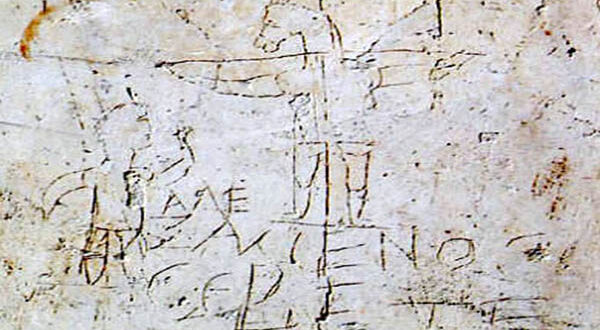 ΑΛΕ
ΞΑΜΕΝΟϹ
ϹΕΒΕΤΕ